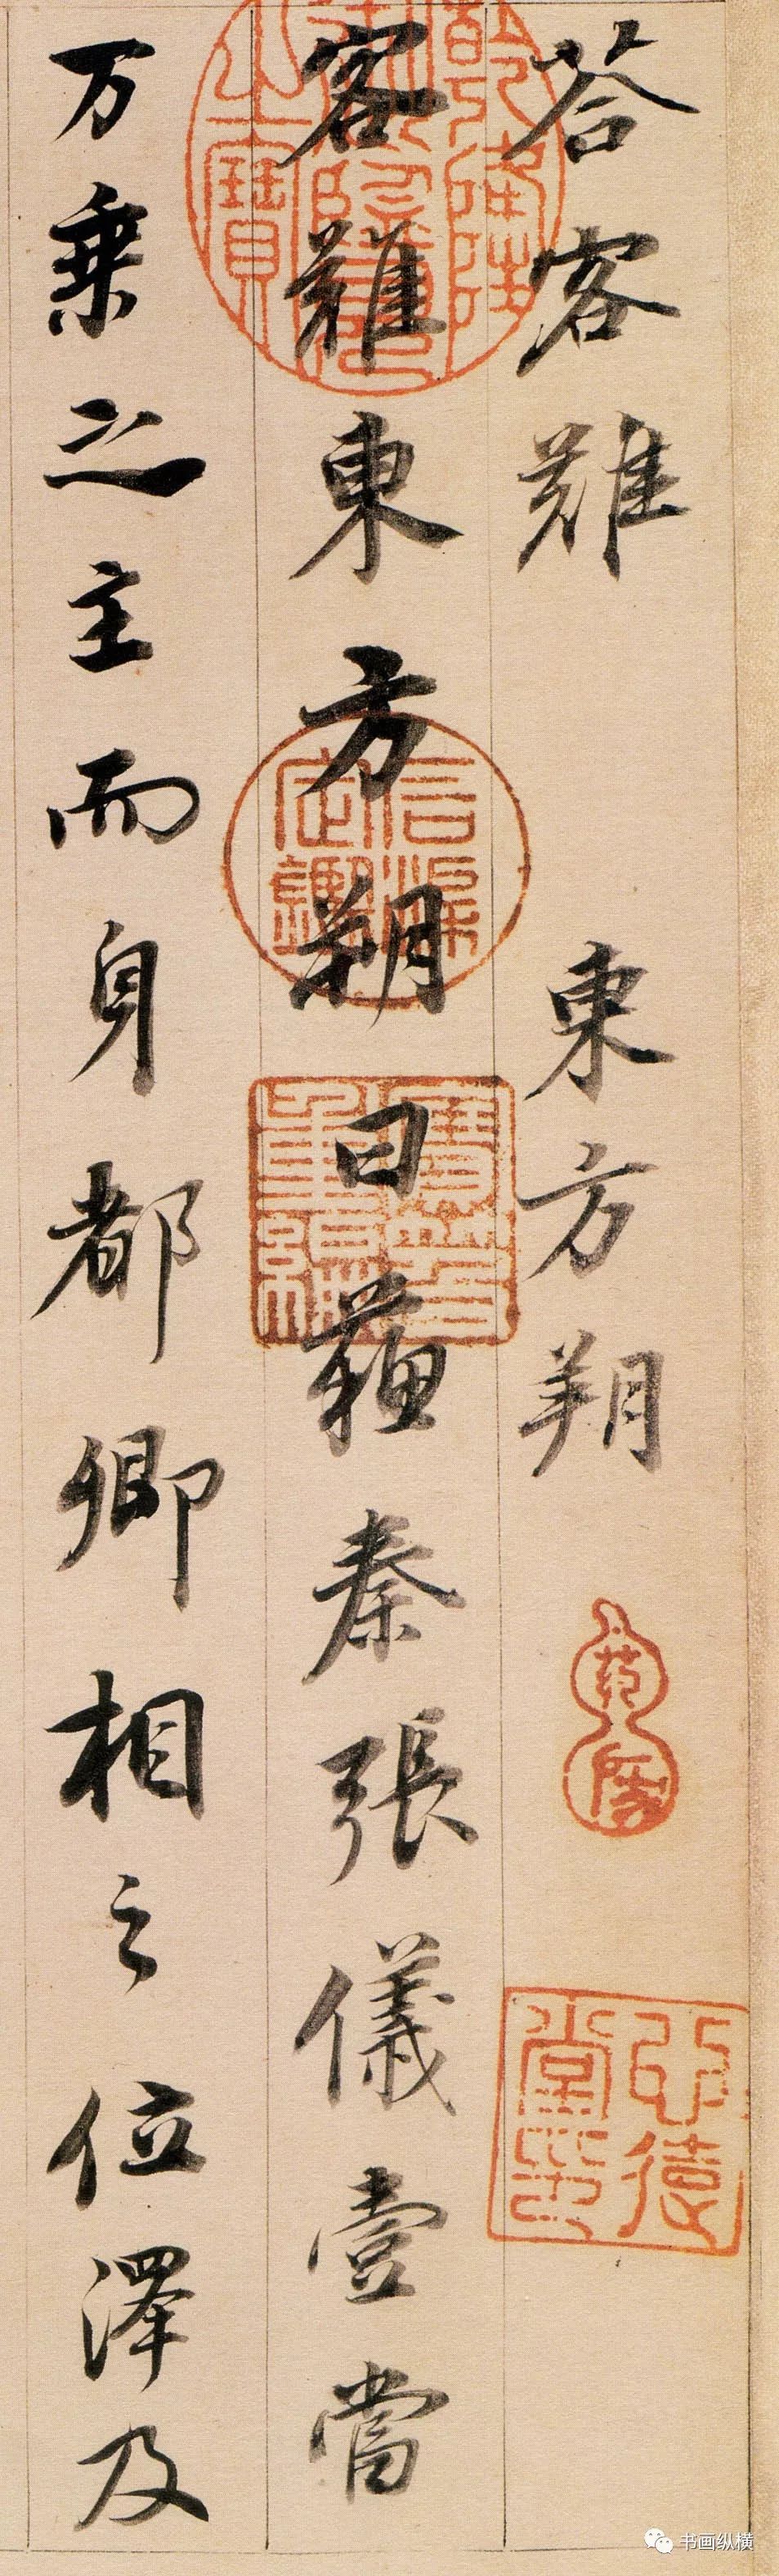 答客難 東方朔
客難東方朔曰蘇秦張儀壹當
万乗之主而身都卿相之位澤及
信天主人
書画纵横